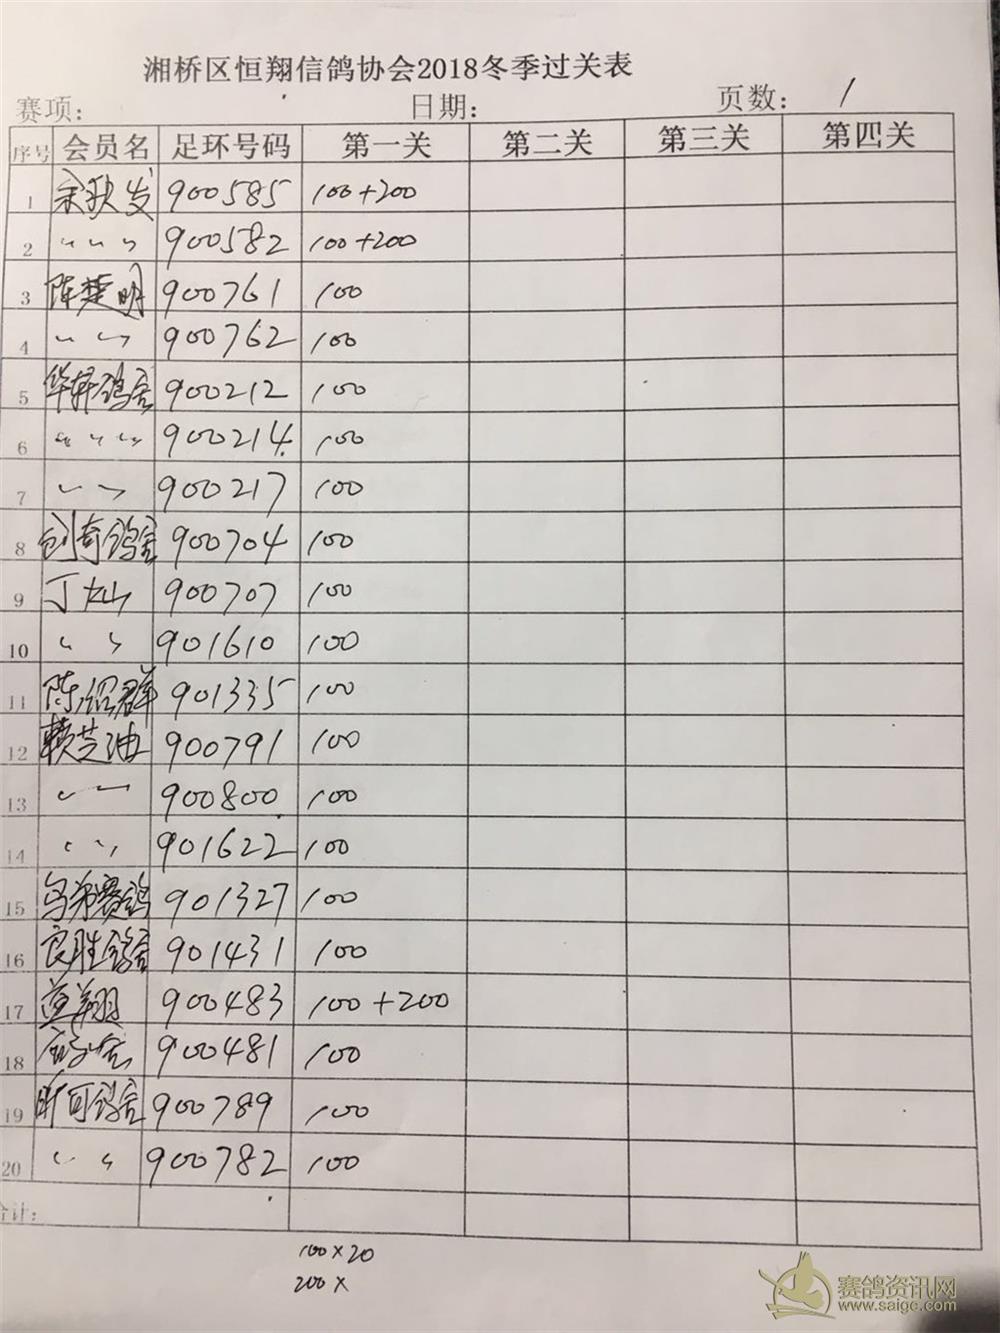 湘桥区恒翔信鸽协会2018冬季过关表
赛项： 日期： 页数： 1
序号 会员名 足环号码 第一关 第二关 第三关 第四关
1 发 900585 100+200
2 〃 〃 〃 900582 100+200
3 陈楚明 900761 100
4 〃 〃 900762 100
5 华轩鸽舍 900212 100
6 〃 〃 〃 900214 100
7 〃 〃 900217 100
8 创奇鸽舍 900704 100
9 丁灿 900707 100
10 〃 〃 901610 100
11 陈绍群 901335 100
12 赖芝油 900791 100
13 〃 〃 900800 100
14 〃 〃 901622 100
15 赛鸽 901327 100
16 良胜鸽舍 901431 100
17 翔 900483 100+200
18 900481 100
19 昕可鸽舍 900789 100
20 〃 〃 900782 100
合计：
100×20
200×
赛鸽资讯网
www.saige.com